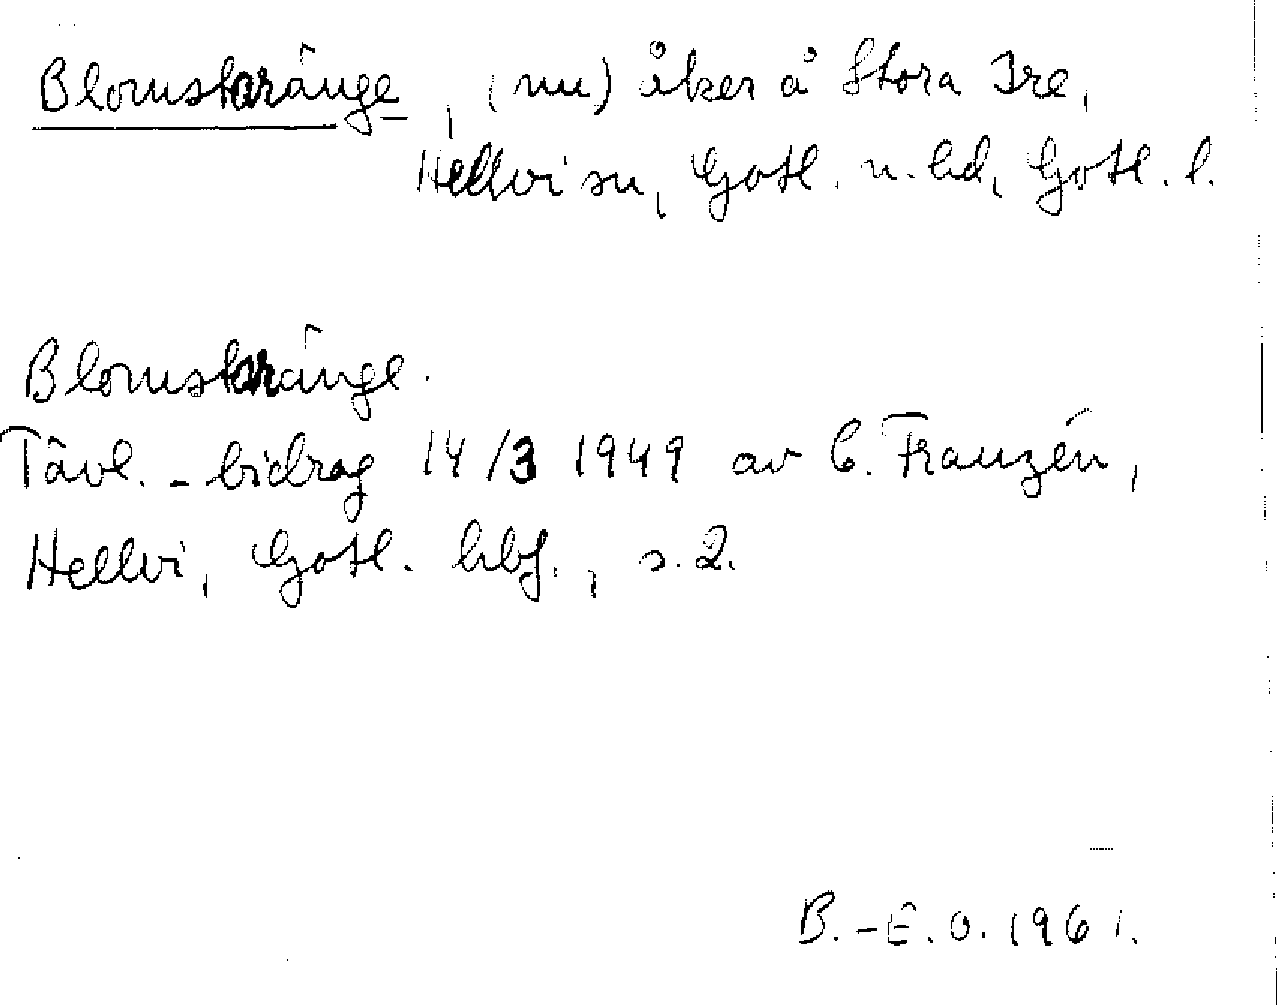 Blomstaränge, (nu) åker å Stora Ire,
Hellvi sn, Gotl. n. hd, Gotl. l.
Blomstaränge.
Tävl. - bidrag 14/3 1949 av C. Franzén,
Hellvi, Gotl. hbf., s. 2.
B.-E. O. 1961.